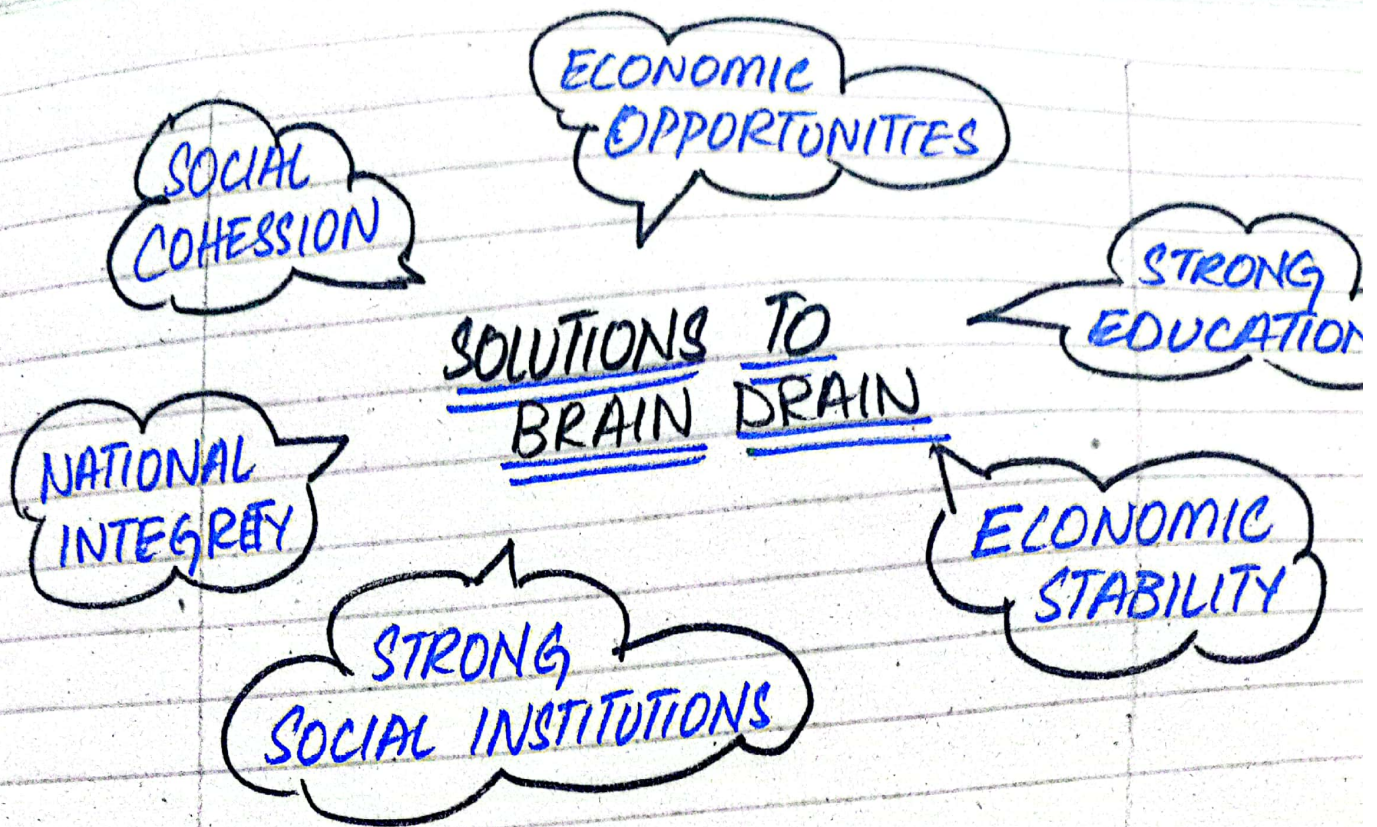 ECONOMIC
OPPORTUNITIES
SOCIAL
COHESSION
STRONG
EDUCATION
SOLUTIONS TO
BRAIN DRAIN
NATIONAL
INTEGRETY
ECONOMIC
STABILITY
STRONG
SOCIAL INSTITUTIONS